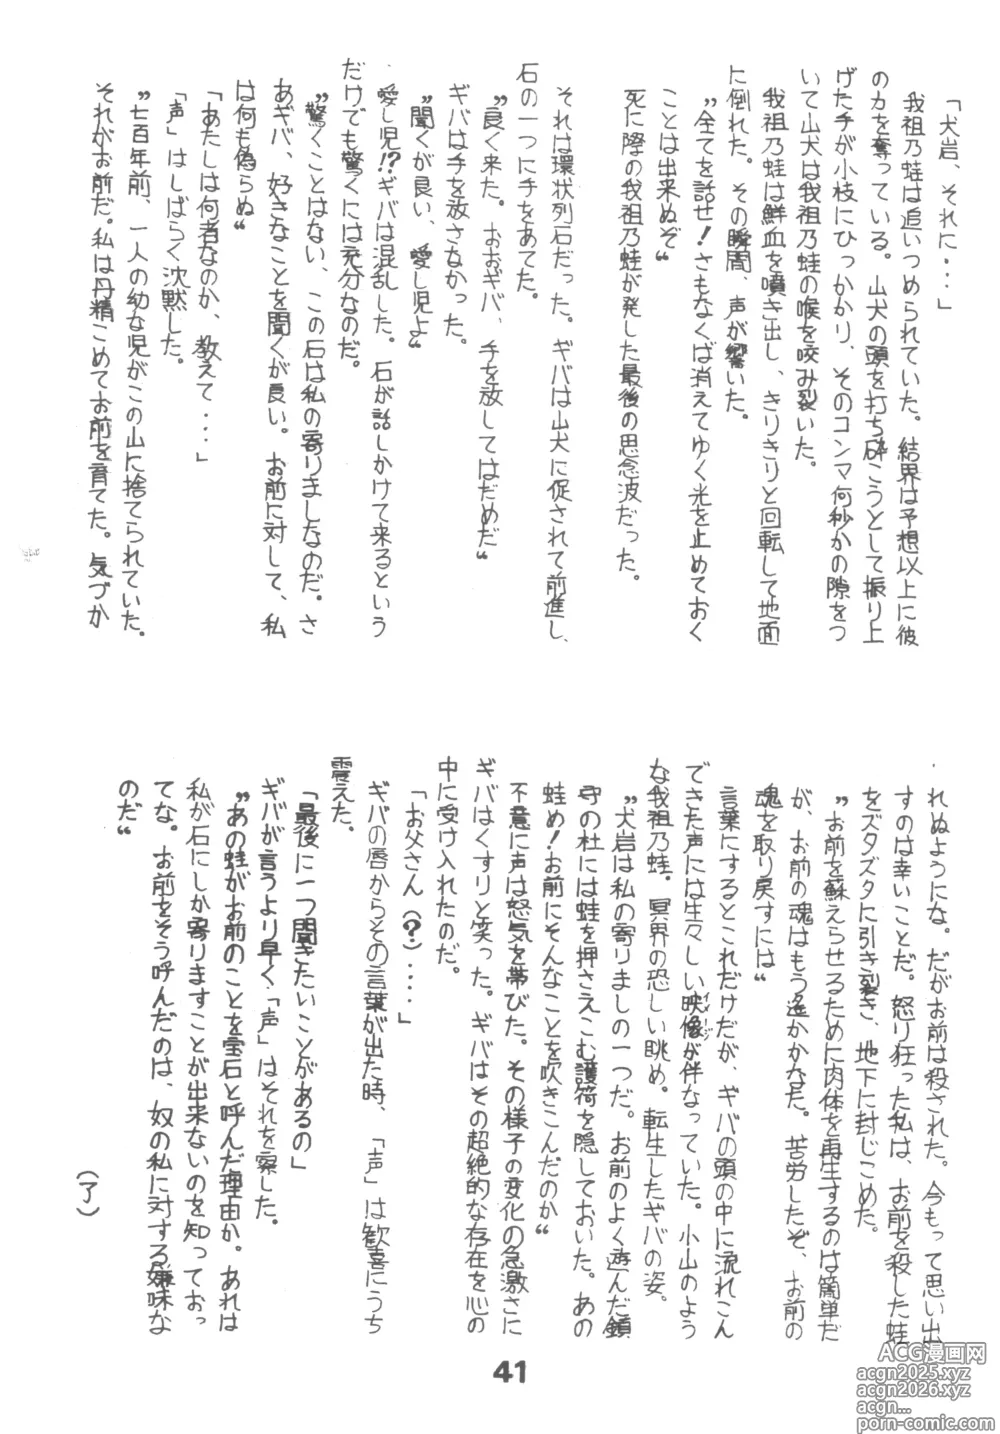 「犬岩、それに・・・」
我祖乃蛙は追いつめられていた。結界は予想以上に彼
の力を奪っている。山犬の頭を打ち砕こうとして振り上
げた手が小枝にひっかかり、そのコンマ何秒かの隙をつ
いて山犬は我祖乃蛙の喉を咬み裂いた。
我祖乃蛙は鮮血を噴き出し、きりきりと回転して地面
に倒れた。その瞬間、声が響いた。
〝全てを話せ！さもなくば消えてゆく光を止めておく
ことは出来ぬぞ〟
死に際の我祖乃蛙が発した最後の思念波だった。
それは環状列石だった。ギバは山犬に促されて前進し、
石の一つに手をあてた。
〝良く来た。おおギバ、手を放してはだめだ〟
ギバは手を放さなかった。
〝聞くが良い、愛し児よ〟
愛し児!?ギバは混乱した。石が話しかけて来るという
だけでも驚くには充分なのだ。
〝驚くことはない、この石は私の寄りましなのだ。さ
あギバ、好きなことを聞くが良い。お前に対して、私
は何も偽らぬ〟
「あたしは何者なのか、教えて・・・・」
「声」はしばらく沈黙した。
〝七百年前、一人の幼な児がこの山に捨てられていた。
それがお前だ。私は丹精こめてお前を育てた。気づか
れぬようにな。だがお前は殺された。今もって思い出
すのは辛いことだ。怒り狂った私は、お前を殺した蛙
をズタズタに引き裂き、地下に封じこめた。
〝お前を蘇えらせるために肉体を再生するのは簡単だ
が、お前の魂はもう遙かかなた。苦労したぞ、お前の
魂を取り戻すには〟
言葉にするとこれだけだが、ギバの頭の中に流れこん
できた声には生々しい映像が伴なっていた。小山のよう
イメージ
な我祖乃蛙。冥界の恐しい眺め。転生したギバの姿。
〝犬岩は私の寄りましの一つだ。お前のよく遊んだ鎮
守の杜には蛙を押さえこむ護符を隠しておいた。あの
蛙め！お前にそんなことを吹きこんだのか〟
不意に声は怒気を帯びた。その様子の変化の急激さに
ギバはくすりと笑った。ギバはその超絶的な存在を心の
中に受け入れたのだ。
「お父さん（？）・・・・」
ギバの唇からその言葉が出た時、「声」は歓喜にうち
震えた。
「最後に一つ聞きたいことがあるの」
ギバが言うより早く「声」はそれを察した。
〝あの蛙がお前のことを宝石と呼んだ理由か。あれは
私が石にしか寄りますことが出来ないのを知っておっ
てな。お前をそう呼んだのは、奴の私に対する嫌味な
のだ〟
（了）
41
ACG漫画网
acgn2025.xyz
acgn2026.xyz
acgn...
porn-comic.com